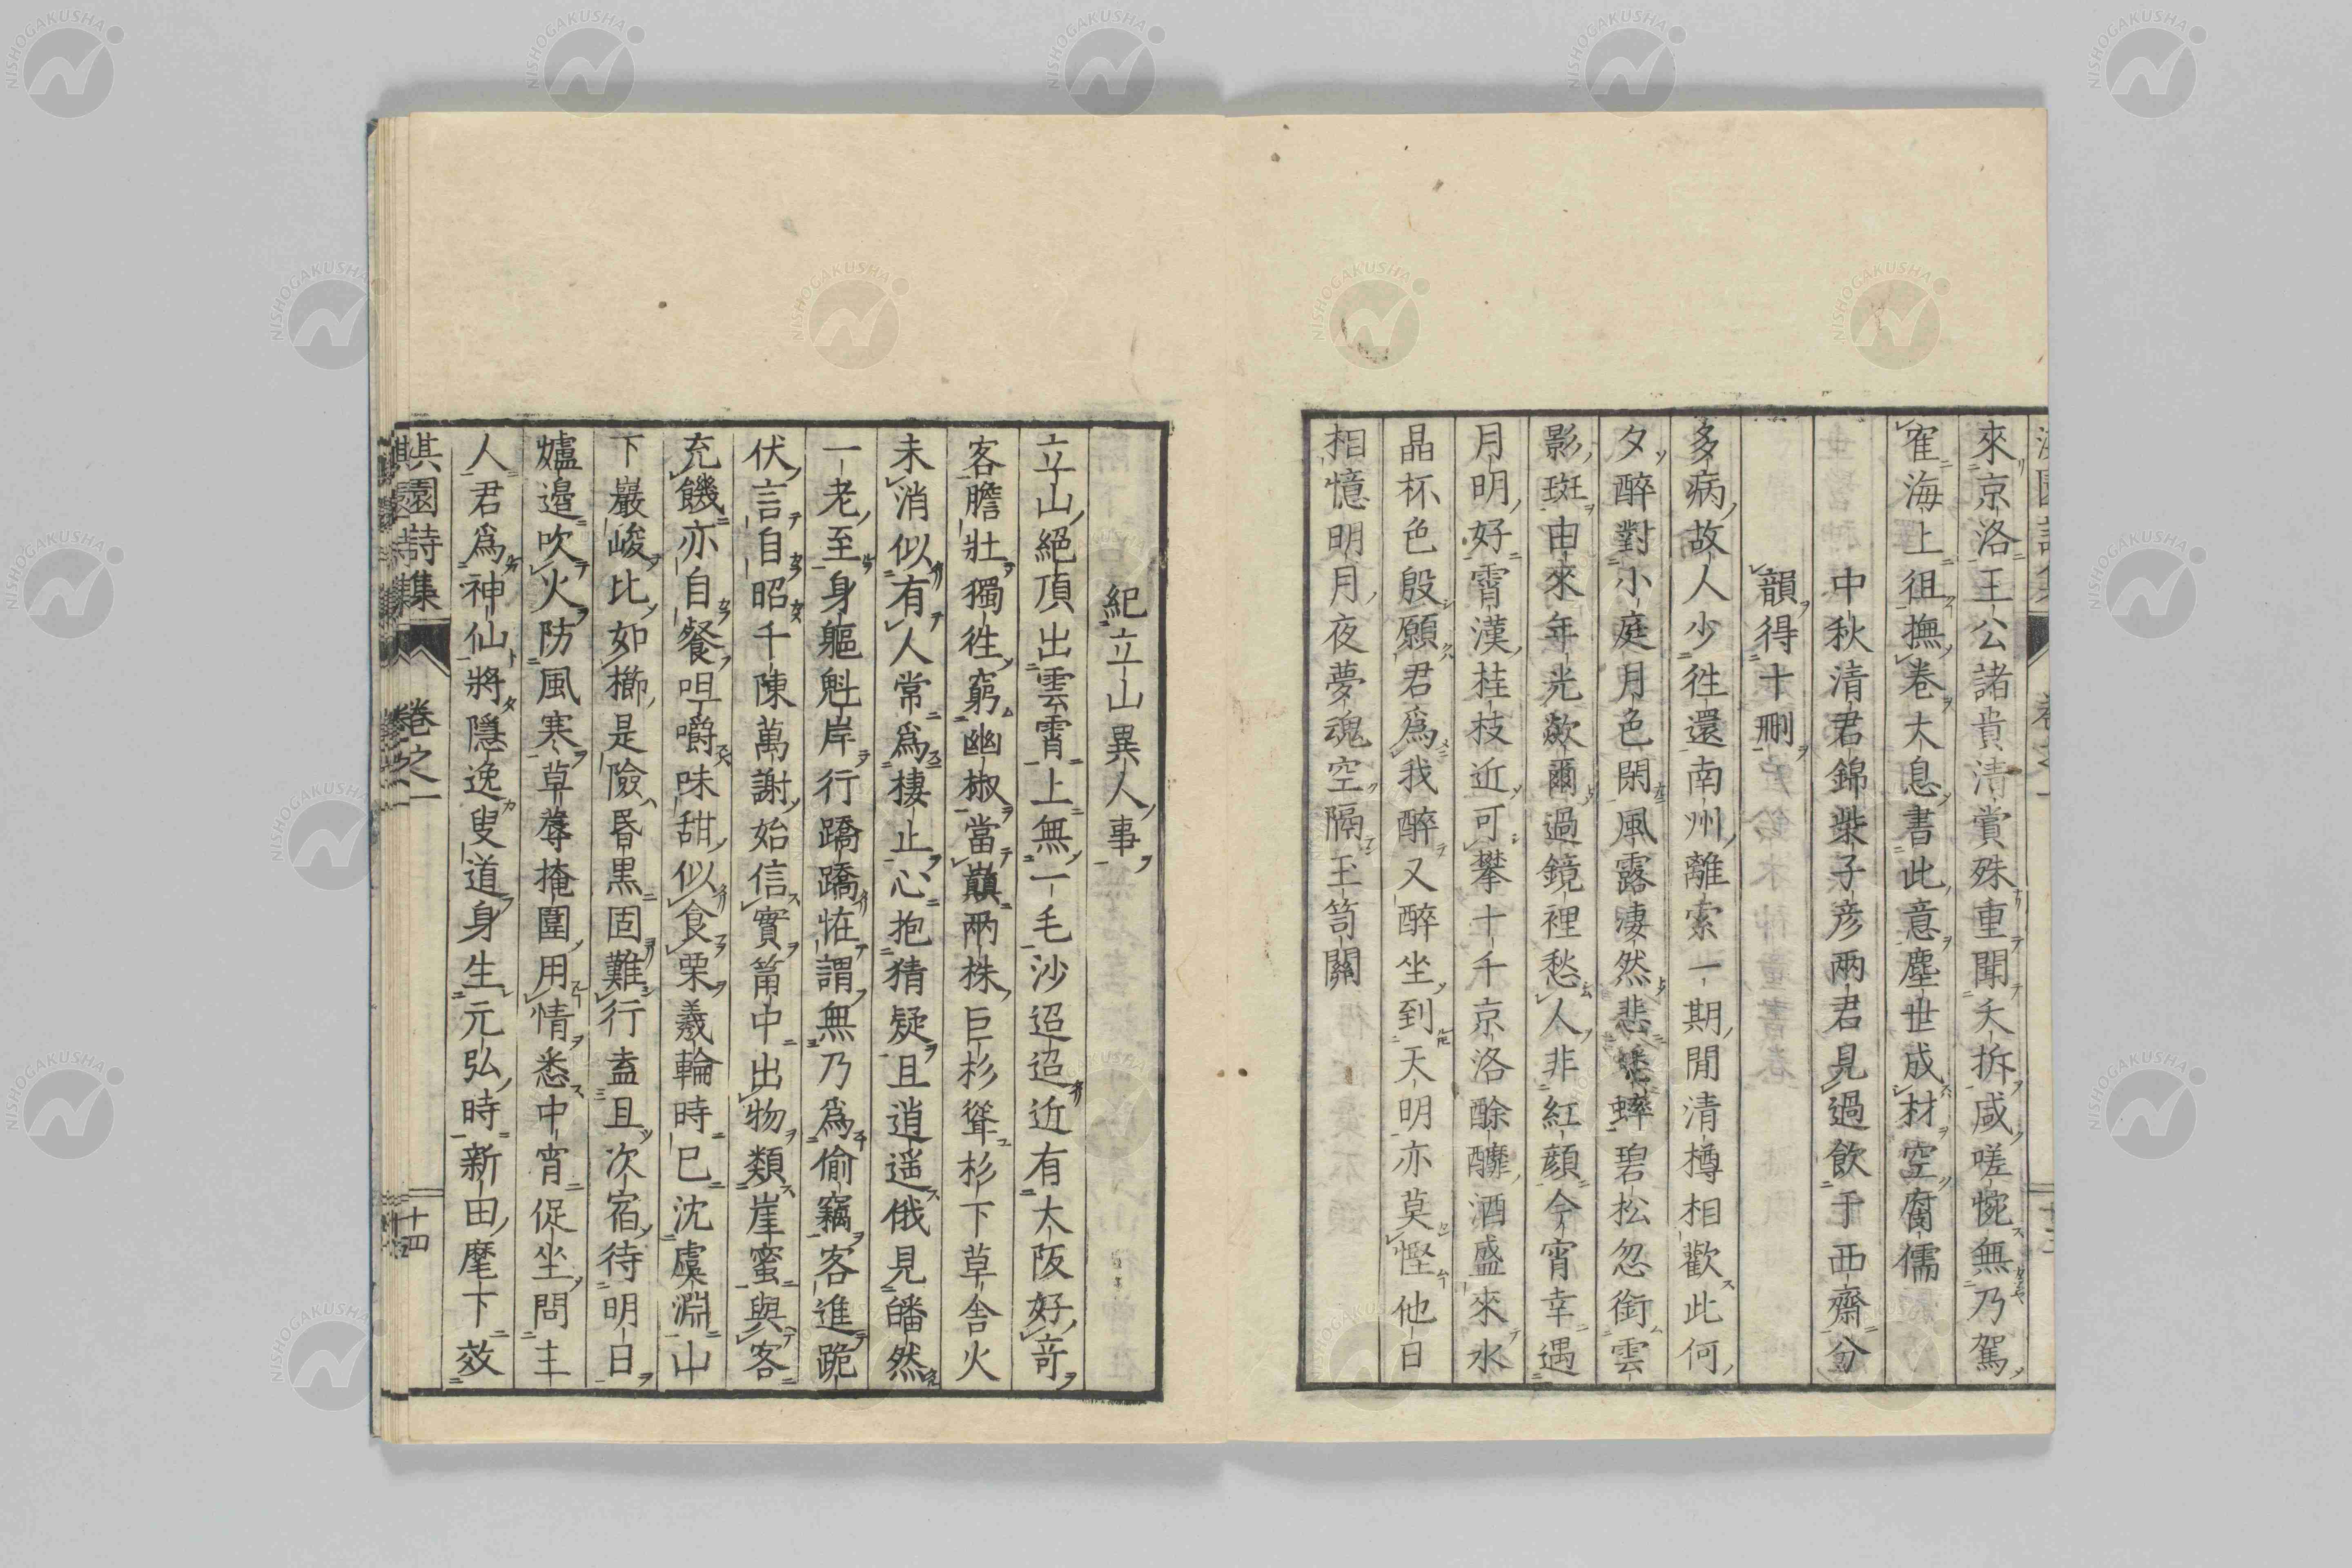 來京洛王公諸貴清賞殊重聞夭拆咸嗟惋無乃駕
寉海上徂撫卷大息書此意塵世成材空腐儒
中秋清君錦柴子彥兩君見過飲于西齋分
韻得十刪
多病故人少徃還南州離索一期閒清樽相歡此何
夕醉對小庭月色閑風露淒然悲蟋蟀碧松忽銜雲
影斑由來年光欻爾過鏡裡愁人非紅顏今宵幸遇
月明好霄漢桂枝近可攀十千京洛酴醿酒盛來水
晶杯色殷願君爲我醉又醉坐到天明亦莫慳他日
相憶明月夜夢魂空隔玉笥關
紀立山異人事
立山絕頂出雲霄上無一毛沙迢迢近有大阪好竒
客膽壯獨徃窮幽椒當巓兩株巨杉聳杉下草舍火
未消似有人常爲棲止心抱猜疑且逍遥俄見皤然
一老至身軀魁岸行蹻蹻恠謂無乃爲偷竊客進跪
伏言自昭千陳萬謝始信實筩中出物類崖蜜與客
充饑亦自餐咀嚼味甜似食栗羲輪時已沈虞淵山
下巖峻比如櫛是險昏黑固難行盍且次宿待明日
爐邊吹火防風寒草辱掩圍用情悉中宵促坐問主
人君爲神仙將隱逸叟道身生元弘時新田麾下效
淇園詩集 卷之一 十四